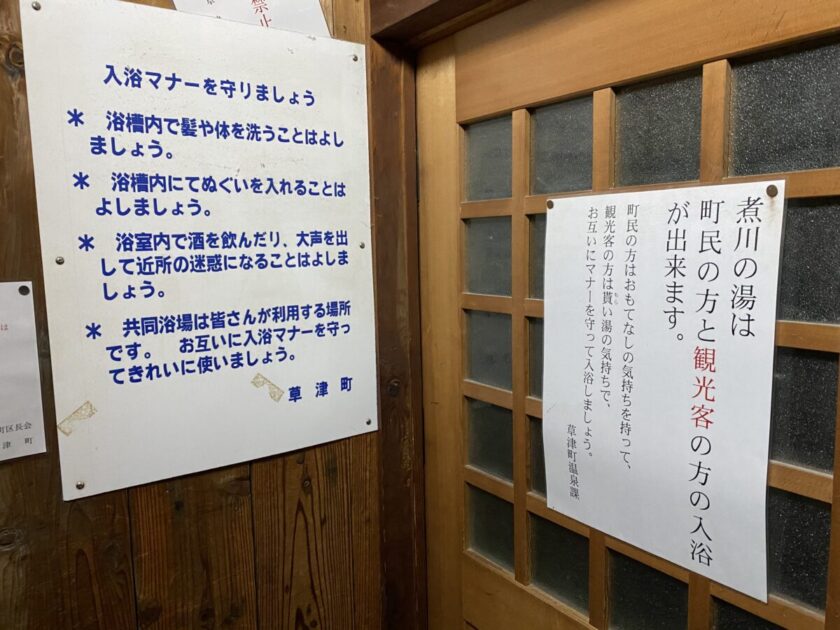 禁止
入浴マナーを守りましょう
＊ 浴槽内で髪や体を洗うことはよし
ましょう。
＊ 浴槽内にてぬぐいを入れることは
よしましょう。
＊ 浴室内で酒を飲んだり、大声を出
して近所の迷惑になることはよしま
しょう。
＊ 共同浴場は皆さんが利用する場所
です。 お互いに入浴マナーを守っ
てきれいに使いましょう。
草津町
は
町区長会
津町
煮川の湯は
町民の方と観光客の方の入浴
が出来ます。
町民の方はおもてなしの気持ちを持って、
観光客の方は貰い湯の気持ちで、
お互いにマナーを守って入浴しましょう。
草津町温泉課